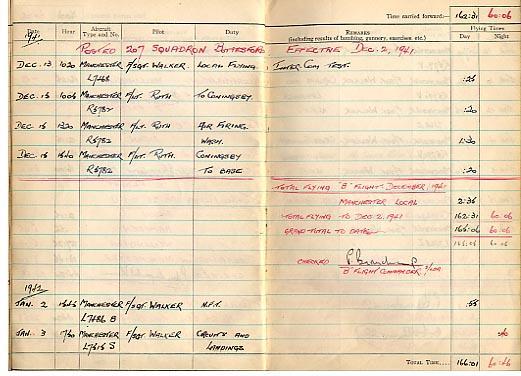 Time carried forward:— 162:31 60:06
Date Hour Aircraft Type and No. Pilot Duty REMARKS (including results of bombing, gunnery, exercises, etc.) Flying Times Day Night
1941
POSTED 207 SQUADRON BOTTESFORD EFFECTIVE DEC. 2, 1941
DEC. 13 MANCHESTER F/SGT. WALKER. LOCAL FLYING. INTER COM TEST.
DEC. 15 MANCHESTER F/LT. RUTH TO CONINGSBY.
R5782 :20
DEC. 15 MANCHESTER F/LT. RUTH. AIR FIRING.
R5782 WASH. 1:30
DEC. 15 MANCHESTER F/LT. RUTH. CONINGSBY
R5782 TO BASE :20
TOTAL FLYING "B" FLIGHT DECEMBER, 1941
MANCHESTER LOCAL 2:35
TOTAL FLYING TO DEC 2, 1941 162:31 60:06
GRAND TOTAL TO DATE 165:06 60:06
165:06 60:06
CHECKED
"B" FLIGHT COMMANDER
1942
JAN. 2 MANCHESTER F/SGT. WALKER N.F.T. :55
JAN. 3 MANCHESTER F/SGT WALKER CIRCUITS AND
S LANDINGS
TOTAL TIME.... 166:01